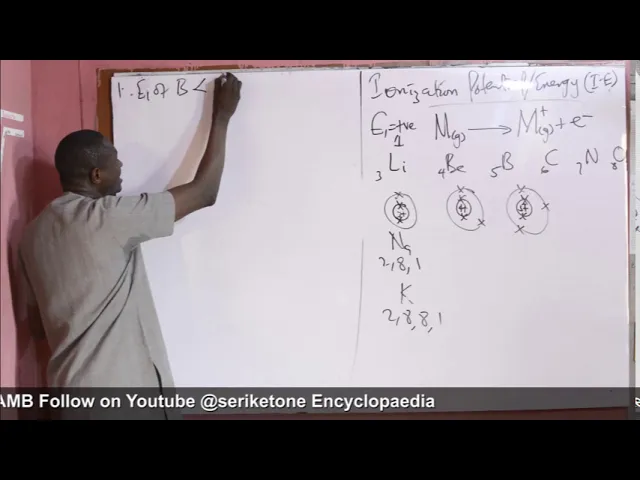 I.E, of B <
Ionization Potential/Energy (I.E)
E₁=+ve M(g) → M⁺(g) + e⁻
1
₃Li ₄Be ₅B ₆C ₇N ₈O
Na
2,8,1
K
2,8,8,1
AMB Follow on Youtube @seriketone Encyclopaedia